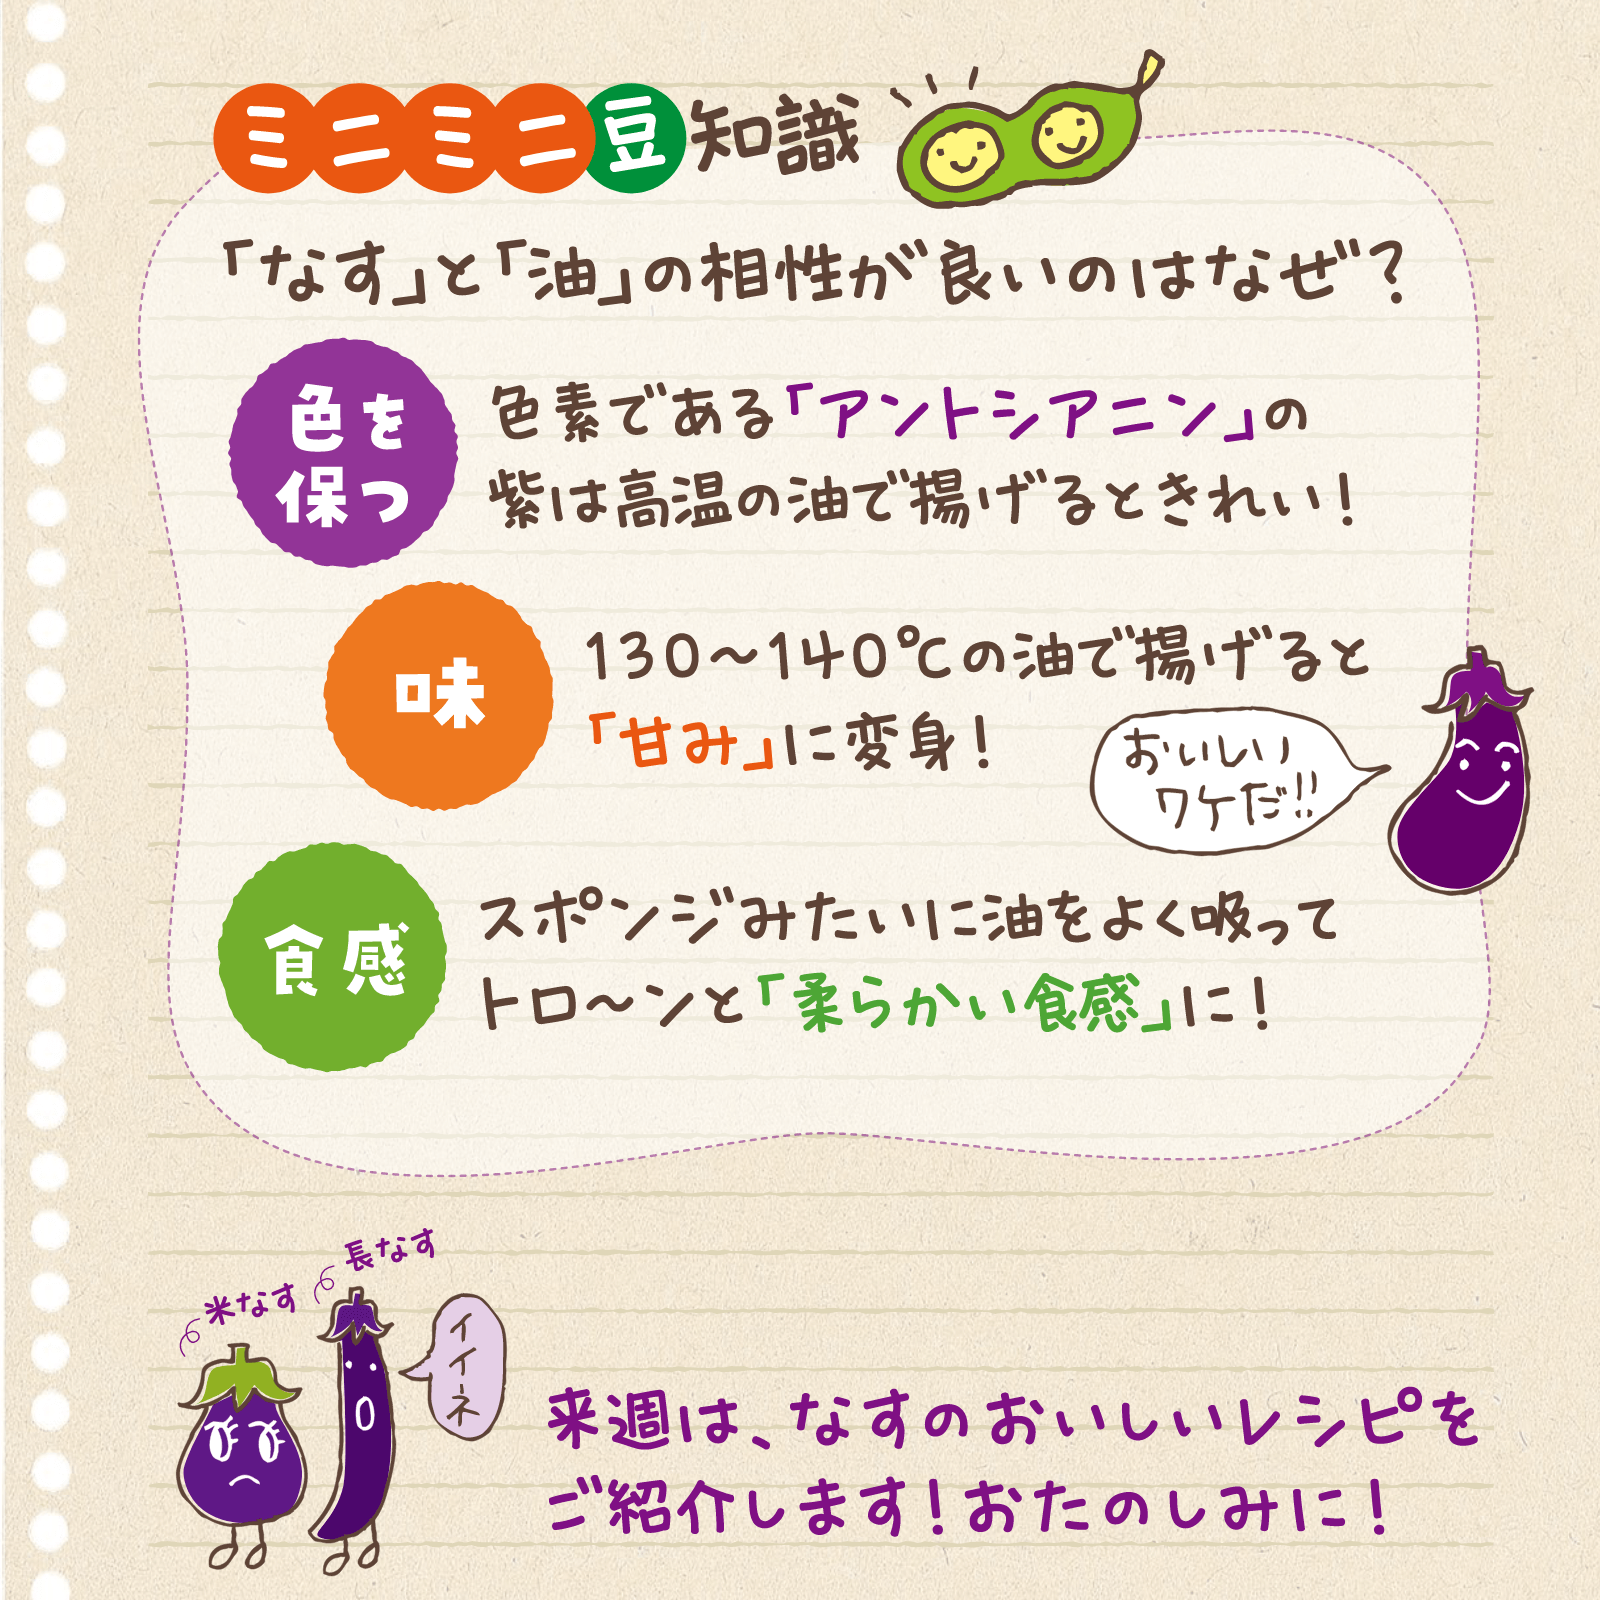 ミニミニ豆知識
「なす」と「油」の相性が良いのはなぜ？
色を
保つ
色素である「アントシアニン」の
紫は高温の油で揚げるときれい！
味
130〜140℃の油で揚げると
「甘み」に変身！
おいしい
ワケだ!!
食感
スポンジみたいに油をよく吸って
トロ〜ンと「柔らかい食感」に！
長なす
米なす
イイネ
来週は、なすのおいしいレシピを
ご紹介します！おたのしみに！